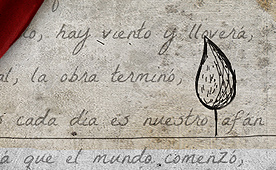 io, hay viento y lloverá,
al, la obra terminó,
s cada día es nuestro afán
á que el mundo comenzó,